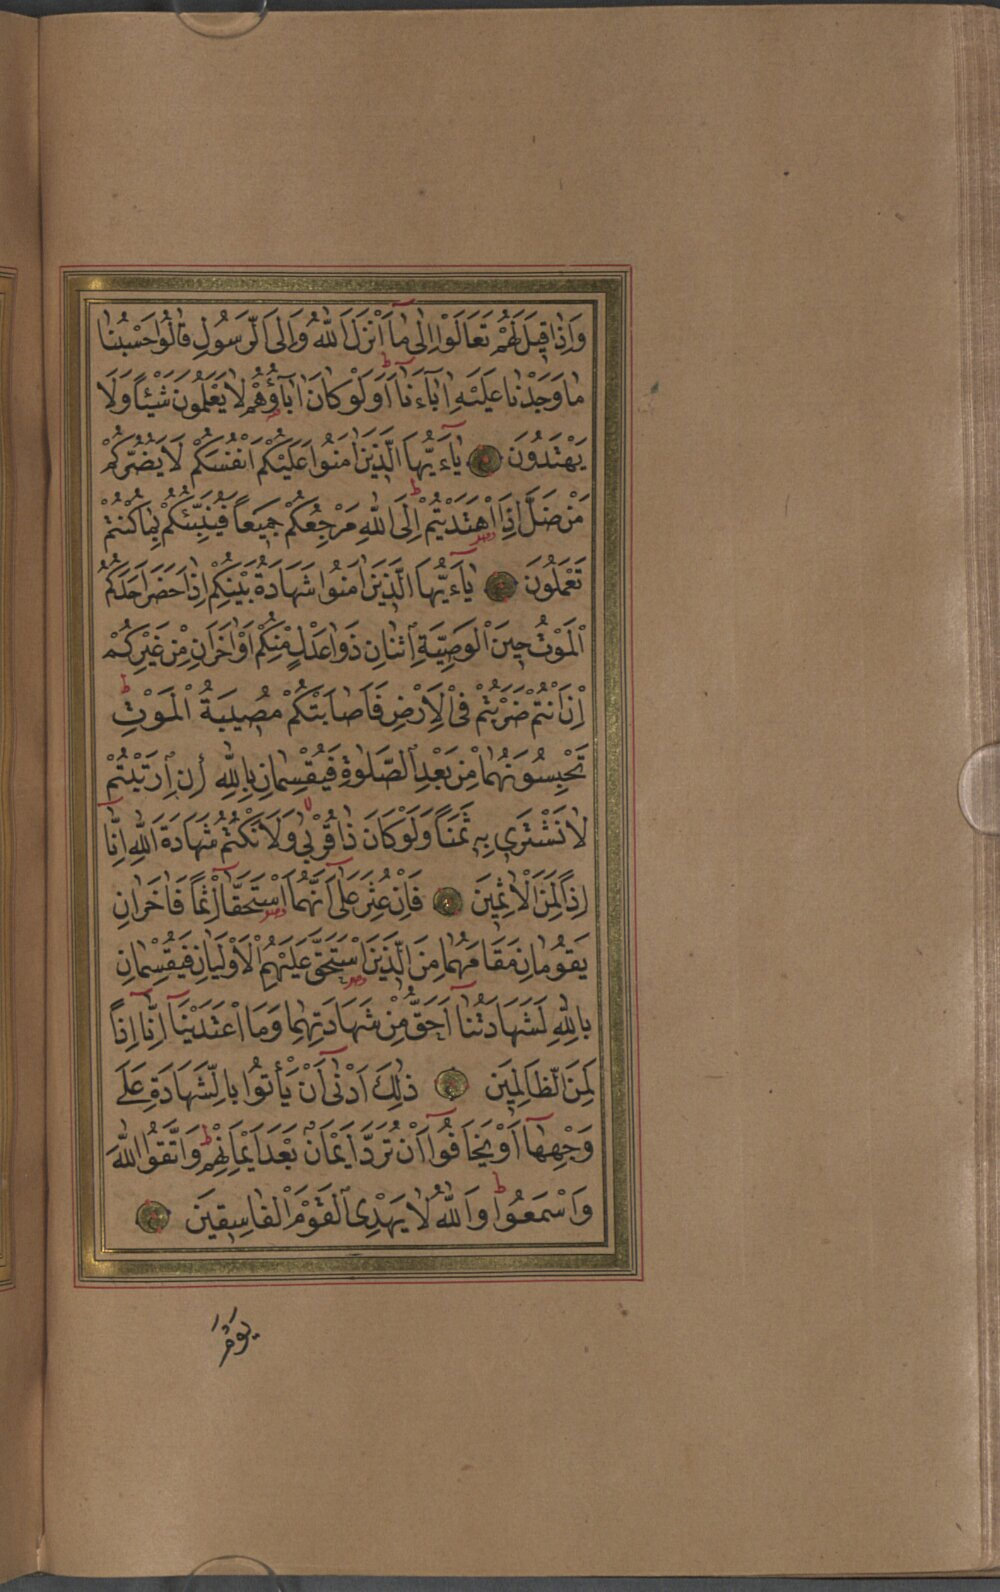 وَاِذَا قِيلَ لَهُمْ تَعَالَوْا اِلٰى مَٓا اَنْزَلَ اللّٰهُ وَاِلَى الرَّسُولِ قَالُوا حَسْبُنَا
مَا وَجَدْنَا عَلَيْهِ اٰبَٓاءَنَا اَوَلَوْ كَانَ اٰبَٓاؤُهُمْ لَا يَعْلَمُونَ شَيْئًا وَلَا
يَهْتَدُونَ يَٓا ءَيُّهَا الَّذِينَ اٰمَنُوا عَلَيْكُمْ اَنْفُسَكُمْ لَا يَضُرُّكُمْ
مَنْ ضَلَّ اِذَا اهْتَدَيْتُمْ ط اِلَى اللّٰهِ مَرْجِعُكُمْ جَمِيعًا فَيُنَبِّئُكُمْ بِمَا كُنْتُمْ
تَعْمَلُونَ يَٓا ءَيُّهَا الَّذِينَ اٰمَنُوا شَهَادَةُ بَيْنِكُمْ اِذَا حَضَرَ اَحَدَكُمُ
الْمَوْتُ حِينَ الْوَصِيَّةِ اثْنَانِ ذَوَا عَدْلٍ مِنْكُمْ اَوْ اٰخَرَانِ مِنْ غَيْرِكُمْ
اِنْ اَنْتُمْ ضَرَبْتُمْ فِى الْاَرْضِ فَاَصَابَتْكُمْ مُصِيبَةُ الْمَوْتِ ط
تَحْبِسُونَهُمَا مِنْ بَعْدِ الصَّلٰوةِ فَيُقْسِمَانِ بِاللّٰهِ اِنِ ارْتَبْتُمْ
لَا نَشْتَرِى بِهِ ثَمَنًا وَلَوْ كَانَ ذَا قُرْبٰى وَلَا نَكْتُمُ شَهَادَةَ اللّٰهِ اِنَّٓا
اِذًا لَمِنَ الْاٰثِمِينَ فَاِنْ عُثِرَ عَلٰٓى اَنَّهُمَا اسْتَحَقَّٓا اِثْمًا فَاٰخَرَانِ
يَقُومَانِ مَقَامَهُمَا مِنَ الَّذِينَ اسْتَحَقَّ عَلَيْهِمُ الْاَوْلَيَانِ فَيُقْسِمَانِ
بِاللّٰهِ لَشَهَادَتُنَٓا اَحَقُّ مِنْ شَهَادَتِهِمَا وَمَا اعْتَدَيْنَٓا اِنَّٓا اِذًا
لَمِنَ الظَّالِمِينَ ذٰلِكَ اَدْنٰٓى اَنْ يَأْتُوا بِالشَّهَادَةِ عَلٰى
وَجْهِهَٓا اَوْ يَخَافُوٓا اَنْ تُرَدَّ اَيْمَانٌ بَعْدَ اَيْمَانِهِمْ ط وَاتَّقُوا اللّٰهَ
وَاسْمَعُوا ط وَاللّٰهُ لَا يَهْدِى الْقَوْمَ الْفَاسِقِينَ
يَوْمَ